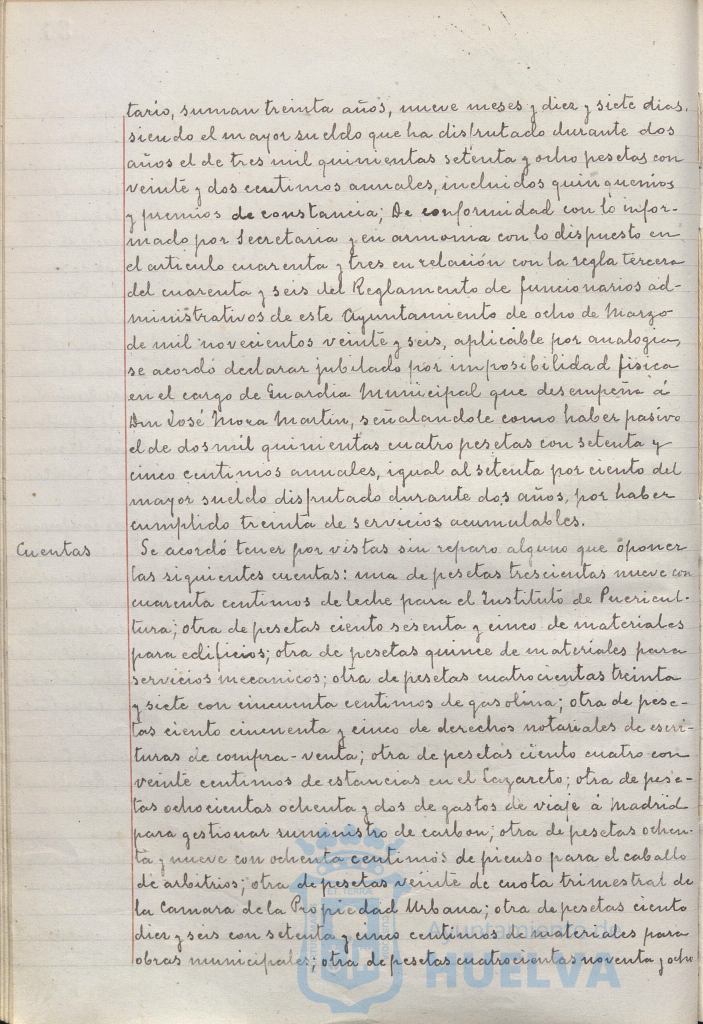 tario, suman treinta años, nueve meses y diez y siete dias,
siendo el mayor sueldo que ha disfrutado durante dos
años el de tres mil quinientas setenta y ocho pesetas con
veinte y dos centimos annales, incluidos quinquenios
y premios de constancia; De conformidad con lo infor-
mado por Secretaria y en armonia con lo dispuesto en
el articulo cuarenta y tres en relación con la regla tercera
del cuarenta y seis del Reglamento de funcionarios ad-
ministrativos de este Ayuntamiento de ocho de Marzo
de mil novecientos veinte y seis, aplicable por analogia,
se acordó declarar jubilado por imposibilidad fisica
en el cargo de Guardia Municipal que desempeña á
Don José Mora Martin, señalandole como haber pasivo
el de dos mil quinientas cuatro pesetas con setenta y
cinco centimos annales, igual al setenta por ciento del
mayor sueldo disfrutado durante dos años, por haber
cumplido treinta de servicios acumulables.
Cuentas Se acordó tener por vistas sin reparo alguno que oponer
las siguientes cuentas: una de pesetas trescientas nueve con
cuarenta centimos de leche para el Instituto de Puericul-
tura; otra de pesetas ciento sesenta y cinco de materiales
para edificios; otra de pesetas quince de materiales para
servicios mecanicos; otra de pesetas cuatrocientas treinta
y siete con cincuenta centimos de gasolina; otra de pese-
tas ciento cincuenta y cinco de derechos notariales de escri-
turas de compra-venta; otra de pesetas ciento cuatro con
veinte centimos de estancias en el Lazareto; otra de pese-
tas ochocientas ochenta y dos de gastos de viaje á Madrid
para gestionar suministro de carbon; otra de pesetas ochen-
ta y nueve con ochenta centimos de pienso para el caballo
de arbitrios; otra de pesetas veinte de cuota trimestral de
la Camara de la Propiedad Urbana; otra de pesetas ciento
diez y seis con setenta y cinco centimos de materiales para
obras municipales; otra de pesetas cuatrocientas noventa y ocho
Ayuntamiento de
HUELVA